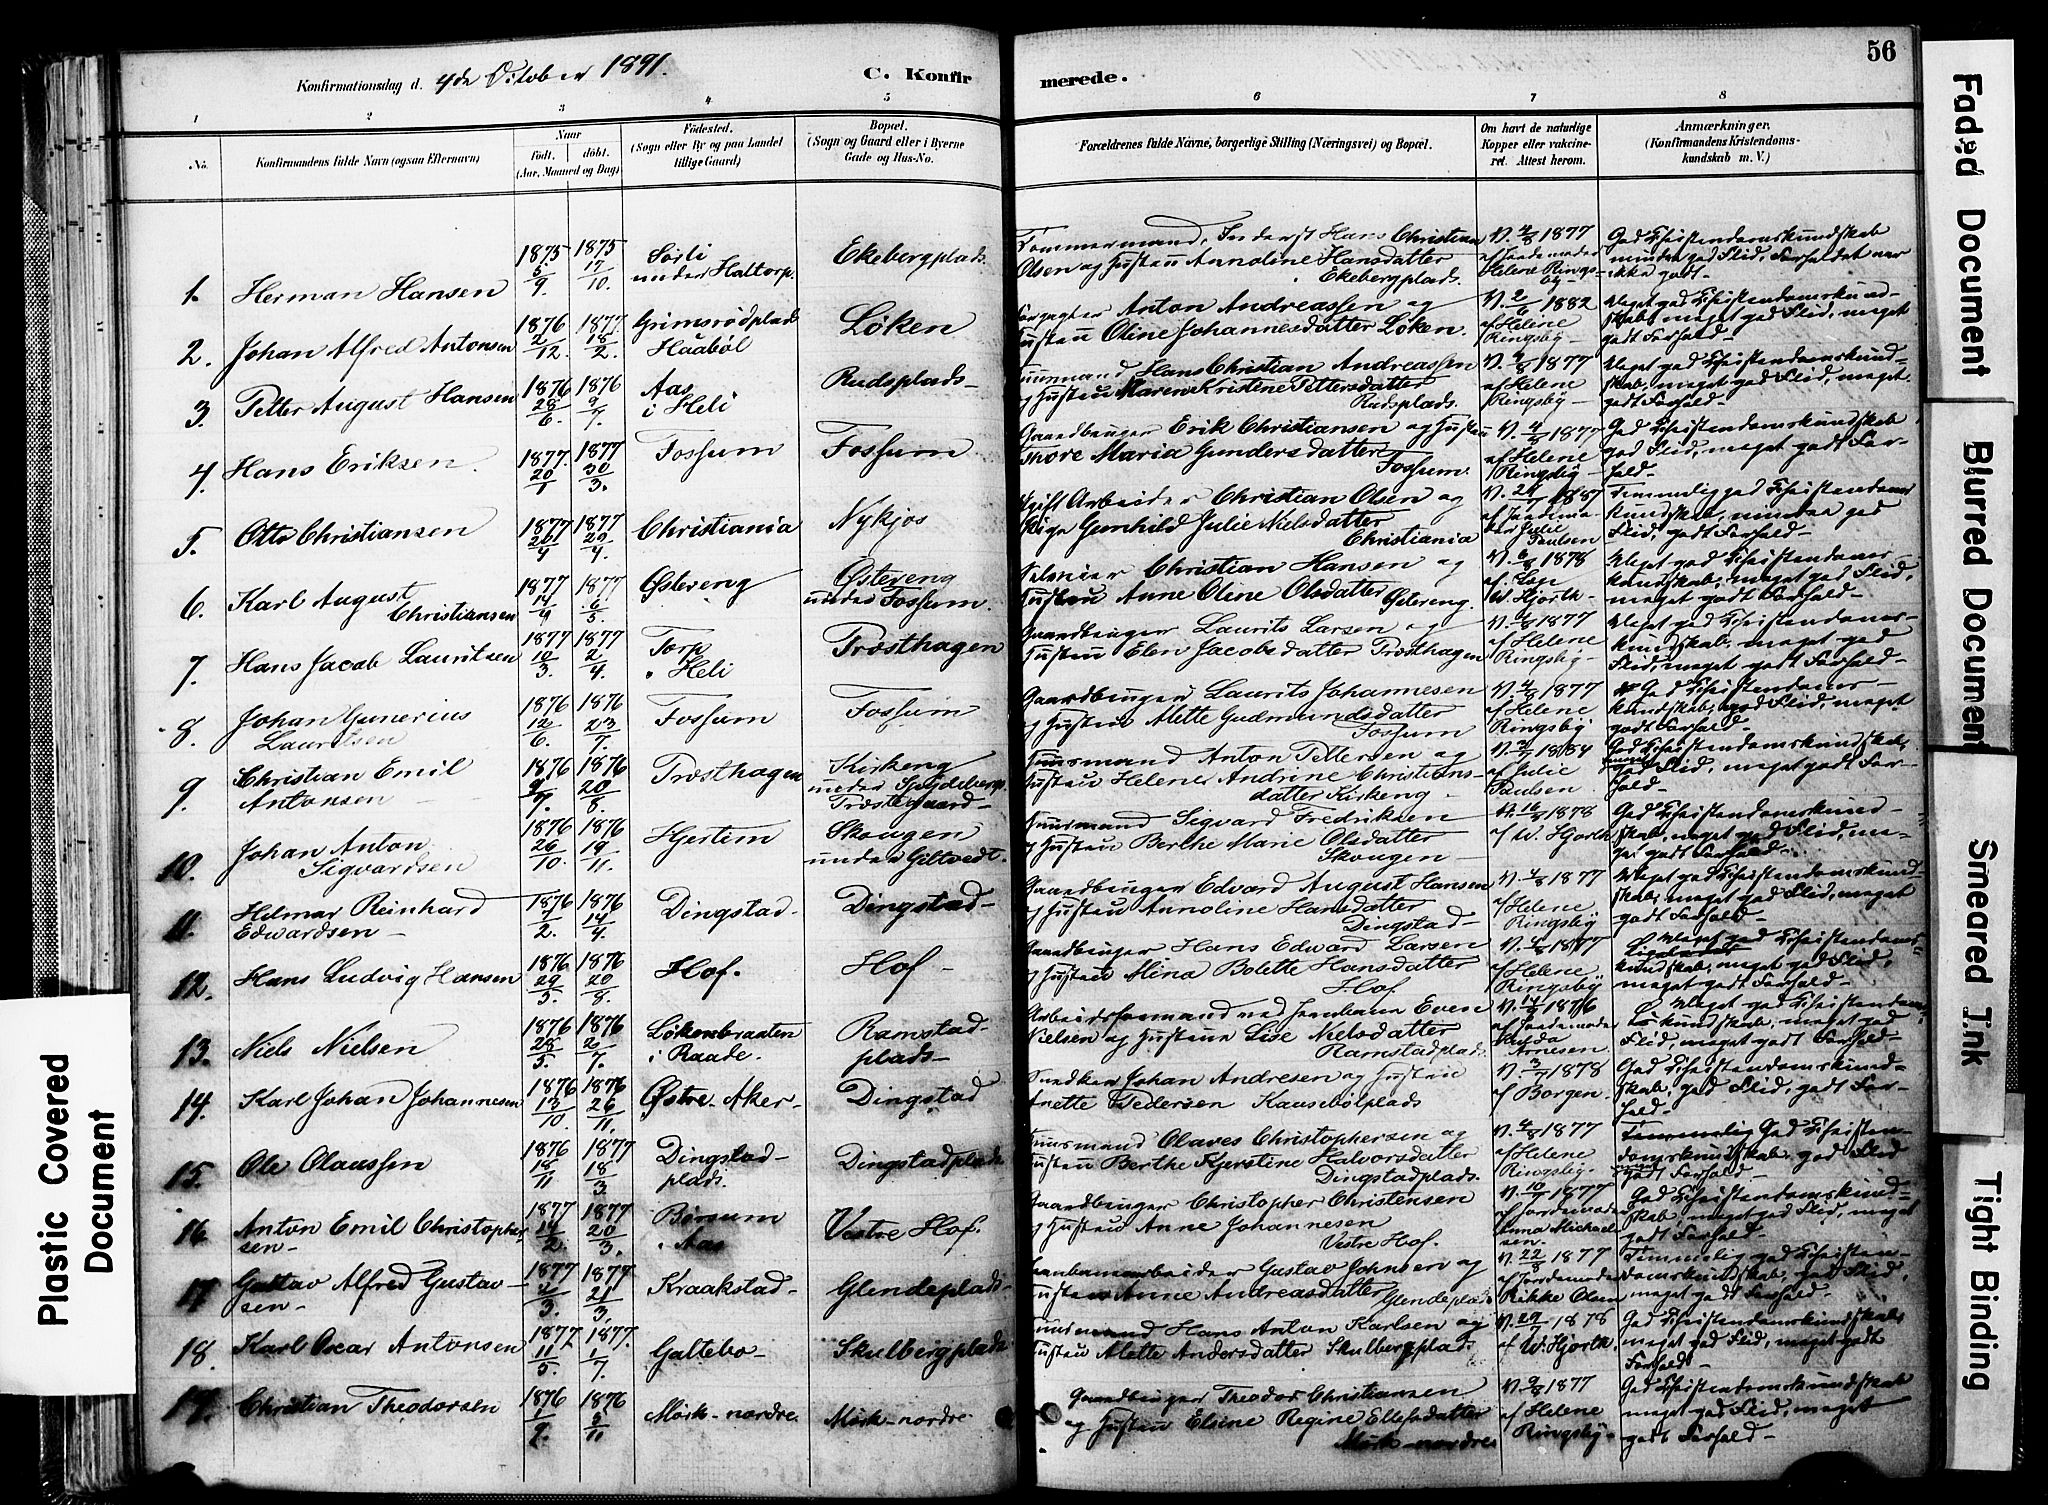 Konfirmationsdag d. 4de October 1891.
C. Konfirmerede.
56
1 2 3 4 5 6 7 8
No.
Konfirmandens fulde Navn (ogsaa Efternavn)
Naar
Født. døbt.
(Aar, Maaned og Dag)
Fødested.
(Sogn eller By og paa Landet
tillige Gaard)
Bopæl.
(Sogn og Gaard eller i Byerne
Gade og Hus-No.
Forældrenes fulde Navne, borgerlige Stilling (Næringsvei) og Bopæl.
Om havt de naturlige
Kopper eller vakcine-
ret. Attest herom.
Anmærkninger.
(Konfirmandens Kristendoms-
kundskab m. V.)
1. Herman Hansen 1875 5/9. 1875 17/10. Sørli under Haltorp. Ekebergplads.
Tømmermand, Inderst Hans Christian
Olsen og Hustru Annoline Hansdatter
Ekebergplads.
V. 4/8 1877
af Jordemoder
Helene Ringsby
God Christendomskundskab
mindre god Flid, Forholdet var
ikke godt.
2. Johan Alfred Antonsen 1876 2/12. 1877. 18/2. Grimsrødplads Haabøl Løken
Anton Andreassen og
Hustru Oline Johannesdatter Løken.
V. 2/6 1882
af Helene
Ringsby
Meget god Christendomskund-
skab, meget god Flid, meget
godt Forhold
3. Petter August Hansen 1876 28/6. 1876 9/7. Aas i Heli Rudsplads
Huusmand Hans Christian Andreassen
og Hustru Maren Kristine Pettersdatter
Rudsplads.
V. 4/8 1877
af Helene
Ringsby
Meget god Christendomskund-
skab, meget god Flid, meget
godt Forhold
4. Hans Eriksen. 1877. 20/1 1877 30/3. Fossum Fossum
Gaardbruger Erik Christiansen og Hustru
Thore Maria Gundersdatter
Fossum.
V. 4/8 1877
af Helene
Ringsby
God Christendomskundskab
god Flid, meget godt For-
hold
5. Otto Christiansen 1877 26/4 1877 29/4. Christiania Nykjos
Arbeider Christian Olsen og
Pige Gunhild Julie Nielsdatter
Christiania
1887
af Jordemo-
der Julie
Paulsen
Temmelig god Christendoms
kundskab, mindre god
Flid, godt Forhold
6. Karl August Christiansen 1877 14/4 1877 6/5. Østereng Østereng under Fossum.
Selveier Christian Hansen og
Hustru Anne Oline Olsdatter
Østereng.
V. 6/8 1878
W. Hjorth
Meget god Christendoms
kundskab, meget god Flid,
meget godt Forhold
7. Hans Jacob Lauritsen 1877 10/3. 1877 2/4. Torp i Heli Træsthagen
Gaardbruger Laurits Larsen og
Hustru Elen Jacobsdatter Træsthagen
V. 4/8 1877
af Helene
Ringsby
Meget god Christendoms-
kundskab, meget god
Flid, meget godt Forhold
8. Johan Gunerius Lauritsen 1876 12/6. 1876 23/7. Fossum Fossum
Gaardbruger Laurits Johannesen
og Hustru Alette Gudmundsdatter
Fossum
V. 4/8 1877
af Helene
Ringsby
God Christendoms-
kundskab, god Flid, meget
godt Forhold
9. Christian Emil Antonsen 1876 1876 20/8. Træsthagen Kirkeng under Spydeberg Præstegaard
Huusmand Anton Pettersen og
Hustru Helene Andrine Christians-
datter Kirkeng
1884
af Julie
Paulsen
God Christendomskundskab,
meget god Flid, meget godt For-
hold.
10. Johan Anton Sigvardsen 1876 26/10. 1876 19/11. Hjertim Skougen under Giltvedt.
Huusmand Sigvard Fredriksen
og Hustru Berthe Marie Olsdatter
Skougen
V. 16/8 1878
af W. Hjorth
God Christendomskund-
skab, meget god Flid, me-
get godt Forhold.
11. Hilmar Reinhard Edwardsen 1876 7/2. 1876 14/4. Dingstad Dingstad
Gaardbruger Edvard August Hansen
og Hustru Annoline Hansdatter
Dingstad
V. 4/8 1877
af Helene
Ringsby
Meget god Christendomskund-
skab, meget god Flid, meget
godt Forhold
12. Hans Ludvig Hansen 1876 29/5. 1876 20/8. Hof. Hof
Gaardbruger Hans Edward Larsen
og Hustru Mina Bolette Hansdatter
Hof
V. 4/8 1877
af Helene
Ringsby
Meget god Christendoms-
kundskab, meget god Flid,
meget godt Forhold
13. Niels Nielsen 1876 28/5. 1876 2/7. Løkenbraaten i Raade. Ramstadplads
Arbeidsformand ved Jernbanen Even
Nielsen og Hustru Lise Nielsdatter
Ramstadplads
V. 14/9 1876
af Jordemoder
Hulda
Arnesen
Meget god Christendoms-
kundskab, meget god
Flid, meget godt Forhold
14. Karl Johan Johannesen 1876 13/10. 1876 26/11. Østre Aker Dingstad
Snedker Johan Andresen og Hustru
Anette Pedersen Kausebølplads
1878
af Borgen
God Christendomskund-
skab, god Flid, godt For-
hold
15. Ole Olaussen 1876 18/11 1877 18/3. Dingstadplads. Dingstadplads
Huusmand Olaves Christophersen og
Hustru Berthe Kjerstine Halvorsdatter
Dingstadplads.
V. 4/8 1877
af Helene
Ringsby
God Christen-
domskundskab, god Flid
godt Forhold
16. Anton Emil Christophersen 1877 14/2. 1877 20/3. Børsum i Aas Vestre Hof.
Gaardbruger Christopher Christensen
og Hustru Anne Johannesen
Vestre Hof.
1877
af Jordemoder
Anna Michael-
sen
God Christendomskund-
skab, meget god Flid, meget
godt Forhold.
17. Gustav Alfred Gustavsen 1877 1877 21/3. Kraakstad Glendeplads
Jernbanearbeider Gustav Johnsen og
Hustru Anne Andreasdatter
Glendeplads
V. 22/8 1877
af Jordemoder
Rikke Olsen
Temmelig god Christen-
domskundskab, god Flid,
meget godt Forhold.
18. Karl Oscar Antonsen 1877 11/5. 1877. 1/7. Galtebo Skulbergplads
Huusmand Hans Anton Karlsen og
Hustru Alette Andersdatter Skulbergplads.
1878
af W. Hjorth.
God Christendomskundskab,
meget god Flid, meget godt
Forhold
19. Christian Theodorsen 1876 1/9. 1876 5/11 Mørk nordre Mørk nordre
Gaardbruger Theodor Christiansen
og Hustru Elsine Regine Ellefsdatter
Mørk nordre
1877
af Helene
Ringsby
God Christendomskundskab
meget god Flid, meget
godt Forhold
Plastic Covered Document
Faded Document
Blurred Document
Smeared Ink
Tight Binding